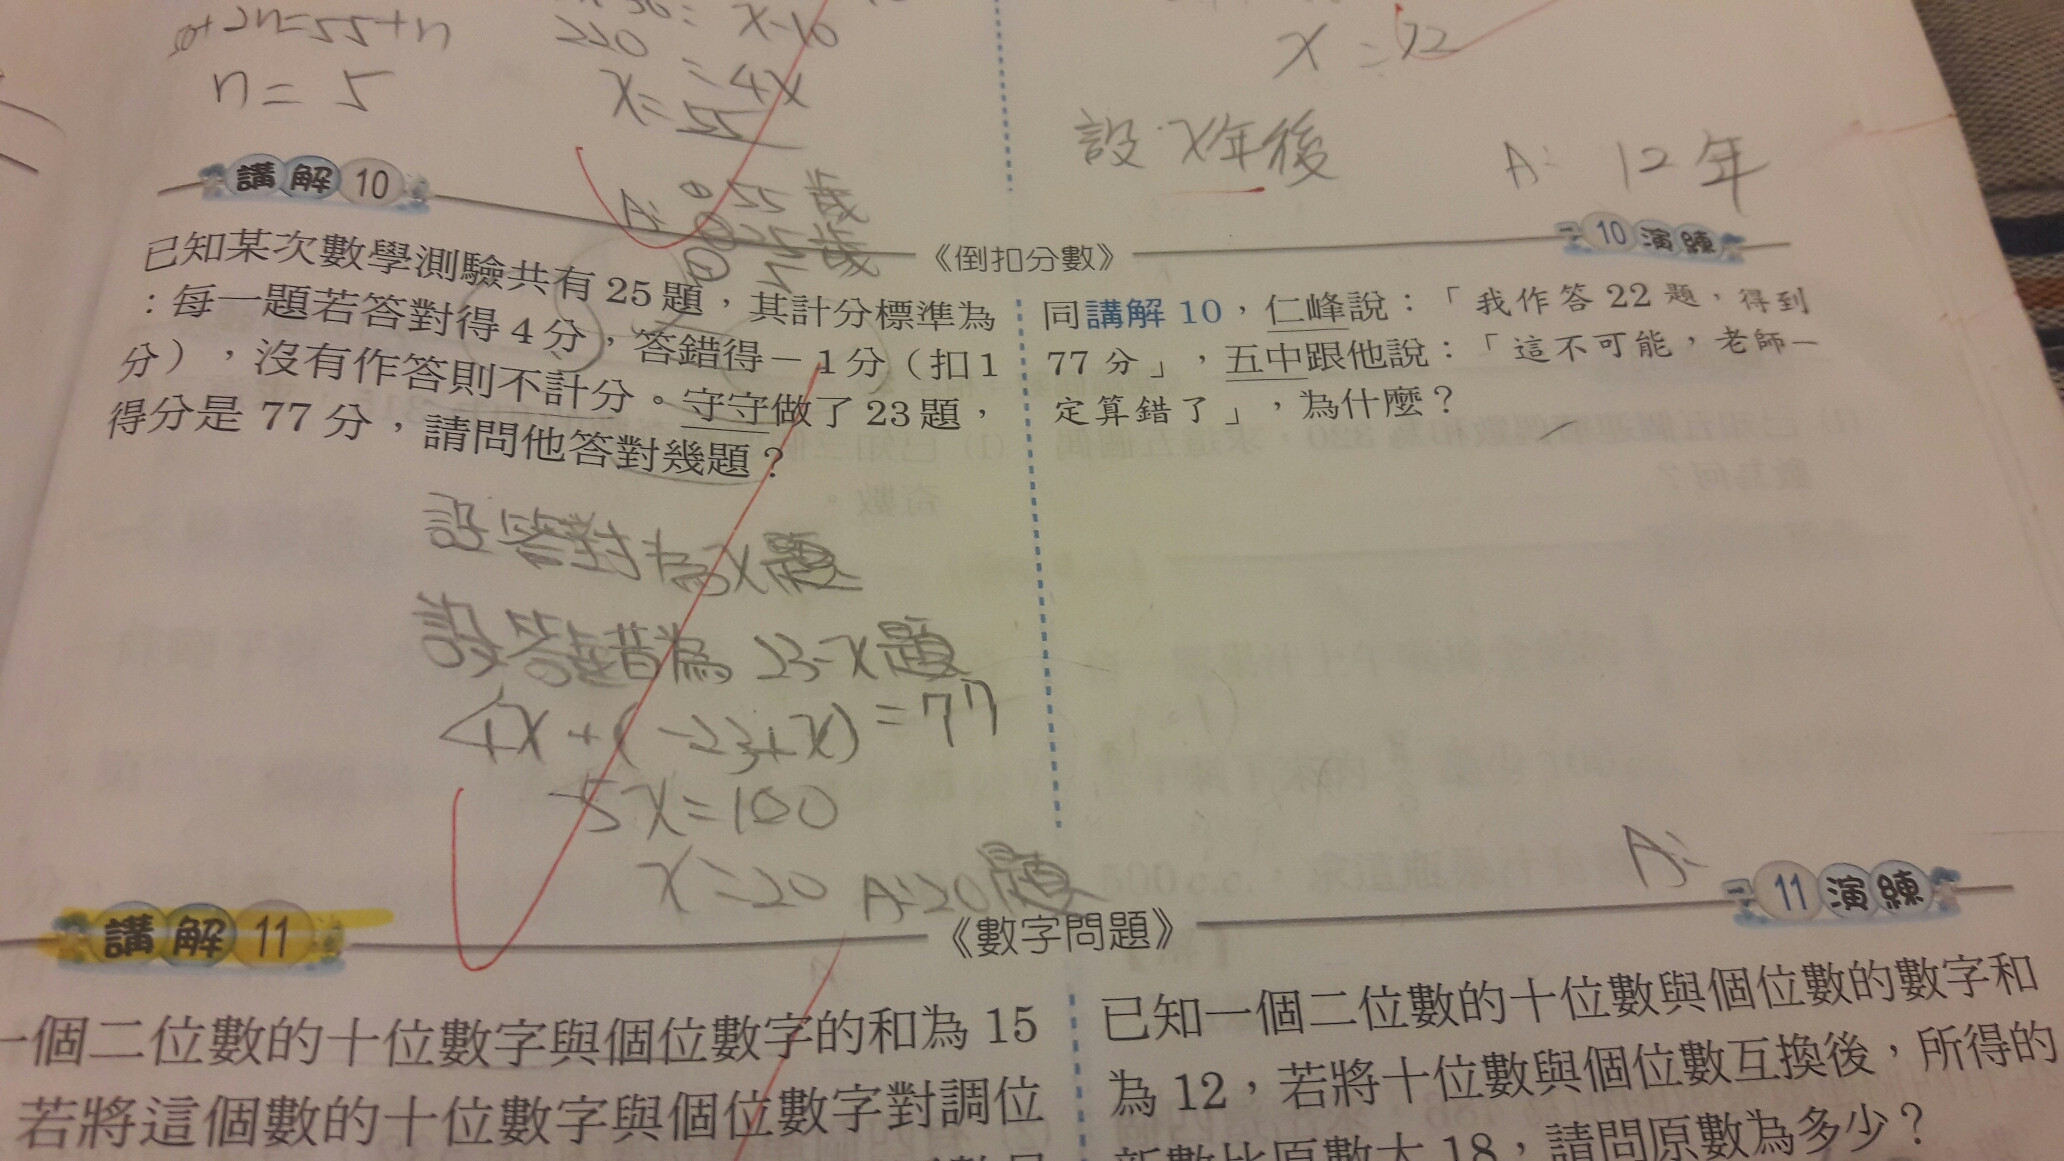 +2n=55+n
n = 5
x-10
220 = 4x
x = 55
x = 12
設 x年後
A: 12年
講解 10
A: ① 55歲
《倒扣分數》
10 演練
已知某次數學測驗共有 25 題,其計分標準為
:每一題若答對得 4 分,答錯得-1 分(扣 1
分),沒有作答則不計分。守守做了 23 題,
得分是 77 分,請問他答對幾題?
設答對為x題
設答錯為 23-x題
4x+(-23+x)=77
5x=100
x=20 A:20題
同講解 10,仁峰說:「我作答 22 題,得到
77 分」,五中跟他說:「這不可能,老師一
定算錯了」,為什麼?
A:
講解 11
《數字問題》
11 演練
一個二位數的十位數字與個位數字的和為 15
若將這個數的十位數字與個位數字對調位
已知一個二位數的十位數與個位數的數字和
為 12,若將十位數與個位數互換後,所得的
新數比原數大 18,請問原數為多少?